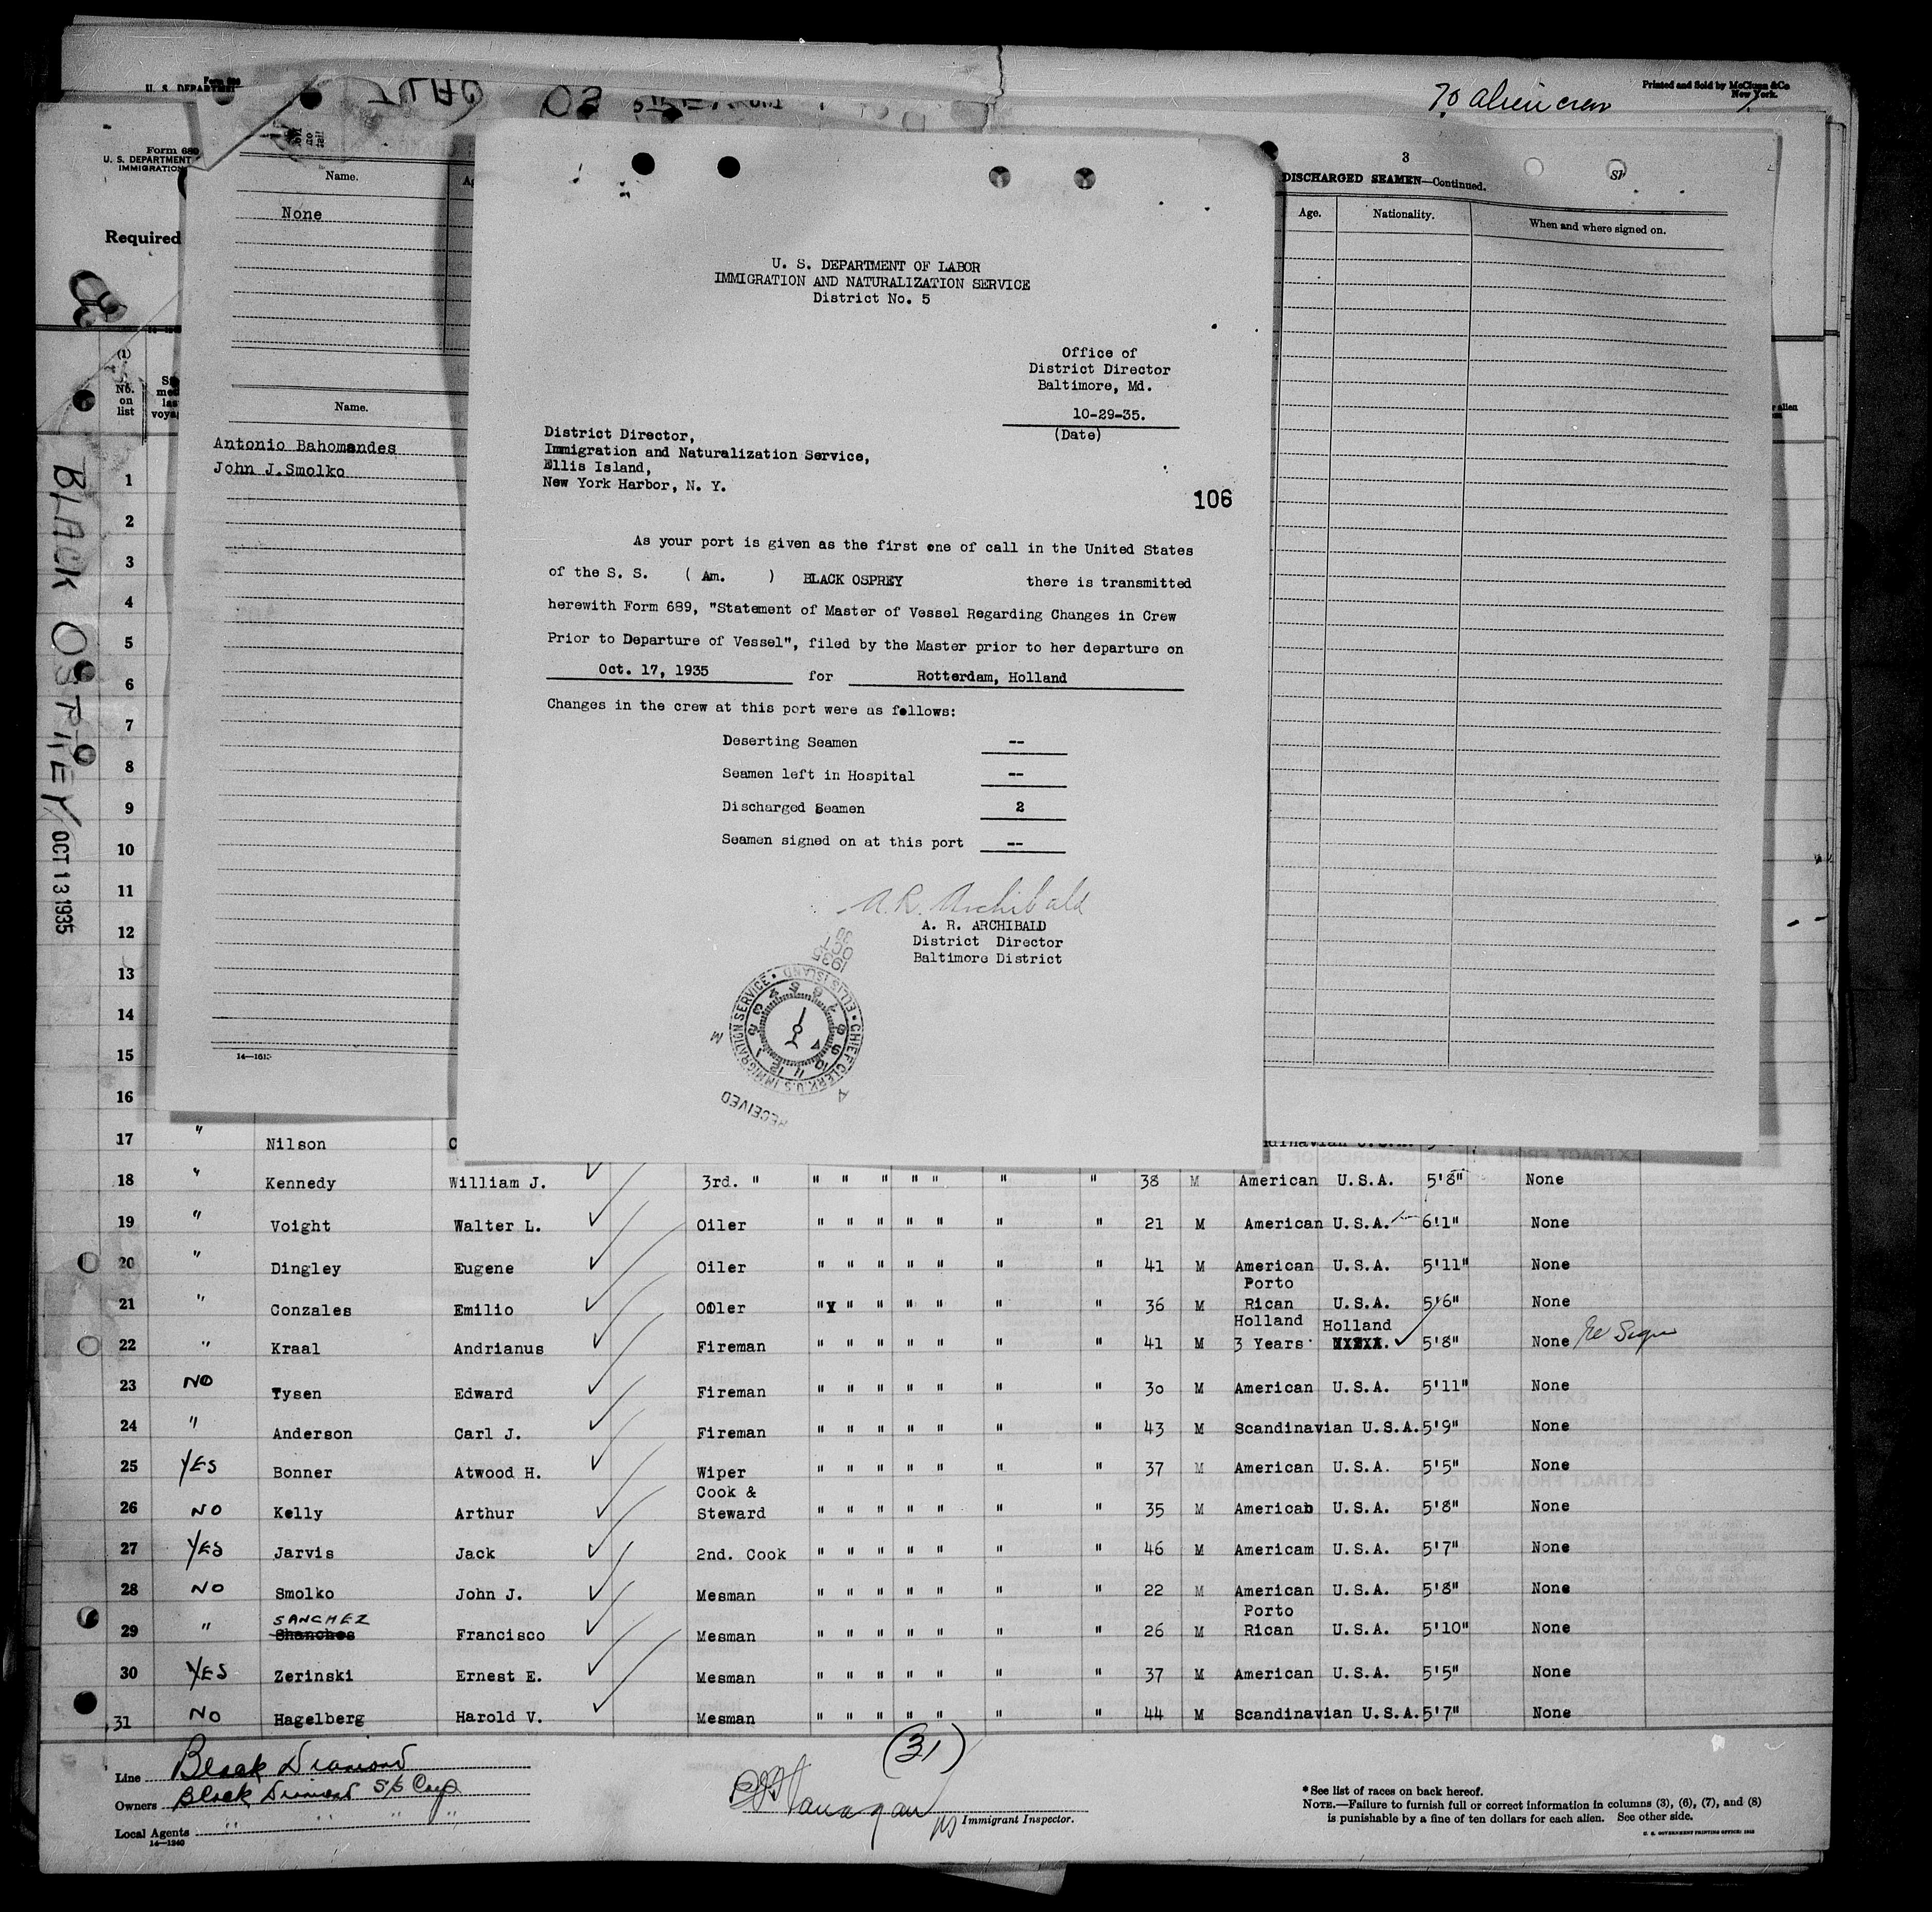 Form 689
U. S. DEPARTMENT
IMMIGRATION
Required
70 alien crew
Printed and Sold by McClunn & Co
New York.
Name.
None
Name.
Antonio Bahomandes
John J. Smolko
14—1613
3
DISCHARGED SEAMEN—Continued.
Age. Nationality. When and where signed on.
U. S. DEPARTMENT OF LABOR
IMMIGRATION AND NATURALIZATION SERVICE
District No. 5
Office of
District Director
Baltimore, Md.
10-29-35.
(Date)
District Director,
Immigration and Naturalization Service,
Ellis Island,
New York Harbor, N. Y.
106
As your port is given as the first one of call in the United States
of the S. S. ( Am. ) BLACK OSPREY there is transmitted
herewith Form 689, "Statement of Master of Vessel Regarding Changes in Crew
Prior to Departure of Vessel", filed by the Master prior to her departure on
Oct. 17, 1935 for Rotterdam, Holland
Changes in the crew at this port were as follows:
Deserting Seamen --
Seamen left in Hospital --
Discharged Seamen 2
Seamen signed on at this port --
A. R. Archibald
A. R. ARCHIBALD
District Director
Baltimore District
1935
OCT 30
CHIEF CLERK U.S. IMMIGRATION SERVICE • ELLIS ISLAND •
RECEIVED
BLACK OSPREY OCT 13 1935
(1)
No.
on
list
1
2
3
4
5
6
7
8
9
10
11
12
13
14
15
16
17 " Nilson
18 " Kennedy William J. 3rd. " " " " " " " " 38 M American U.S.A. 5'8" None
19 " Voight Walter L. Oiler " " " " " " " 21 M American U.S.A. 6'1" None
20 " Dingley Eugene Oiler " " " " " " " 41 M American U.S.A. 5'11" None
21 " Conzales Emilio Oiler " " " " " " " 36 M Porto Rican U.S.A. 5'6" None
22 " Kraal Andrianus Fireman " " " " " " " 41 M Holland 3 Years Holland 5'8" None
23 NO Tysen Edward Fireman " " " " " " " 30 M American U.S.A. 5'11" None
24 " Anderson Carl J. Fireman " " " " " " " 43 M Scandinavian U.S.A. 5'9" None
25 YES Bonner Atwood H. Wiper " " " " " " " 37 M American U.S.A. 5'5" None
26 NO Kelly Arthur Cook & Steward " " " " " " " 35 M American U.S.A. 5'8" None
27 YES Jarvis Jack 2nd. Cook " " " " " " " 46 M Americam U.S.A. 5'7" None
28 NO Smolko John J. Mesman " " " " " " " 22 M American U.S.A. 5'8" None
29 " SANCHEZ Shanches Francisco Mesman " " " " " " " 26 M Porto Rican U.S.A. 5'10" None
30 YES Zerinski Ernest E. Mesman " " " " " " " 37 M American U.S.A. 5'5" None
31 NO Hagelberg Harold V. Mesman " " " " " " " 44 M Scandinavian U.S.A. 5'7" None
(31)
Line Black Diamond
Owners Black Diamond S/S Corp
Local Agents " " "
14—1240
Immigrant Inspector.
* See list of races on back hereof.
NOTE.—Failure to furnish full or correct information in columns (3), (6), (7), and (8)
is punishable by a fine of ten dollars for each alien. See other side.